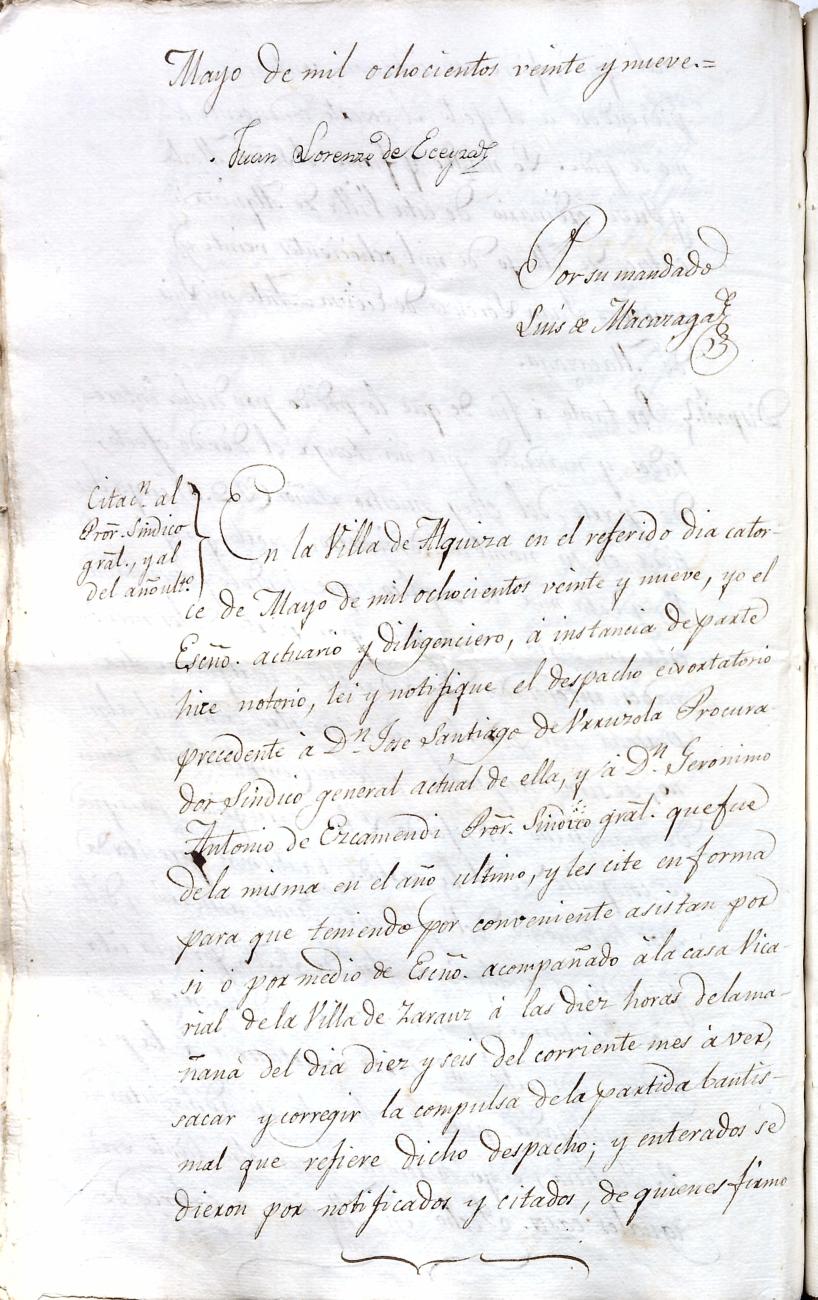 Mayo de mil ochocientos veinte y nueve.=
Juan Lorenzo de Eceyza
Por su mandado
Luis de Macazaga
Citac.n al
Pror. Sindico
gral., y al
del año ult.o
En la Villa de Alquiza en el referido dia cator-
ce de Mayo de mil ochocientos veinte y nueve, yo el
Escño. actuario y diligenciero, á instancia de parte
hice notorio, lei y notifique el despacho eixortatorio
precedente à D.n Jose Santiago de Urruzola Procura-
dor Sindico general actual de ella, y à D.n Geronimo
Antonio de Ezcamendi Pror. Sindico gral. que fue
de la misma en el año ultimo, y les cite en forma
para que teniendo por conveniente asistan por
si o por medio de Escño. acompañado à la casa Vica-
rial de la Villa de Zarauz á las diez horas de la ma-
ñana del dia diez y seis del corriente mes à ver,
sacar y corregir la compulsa de la partida bautis-
mal que refiere dicho despacho; y enterados se
dieron por notificados y citados, de quienes firmo